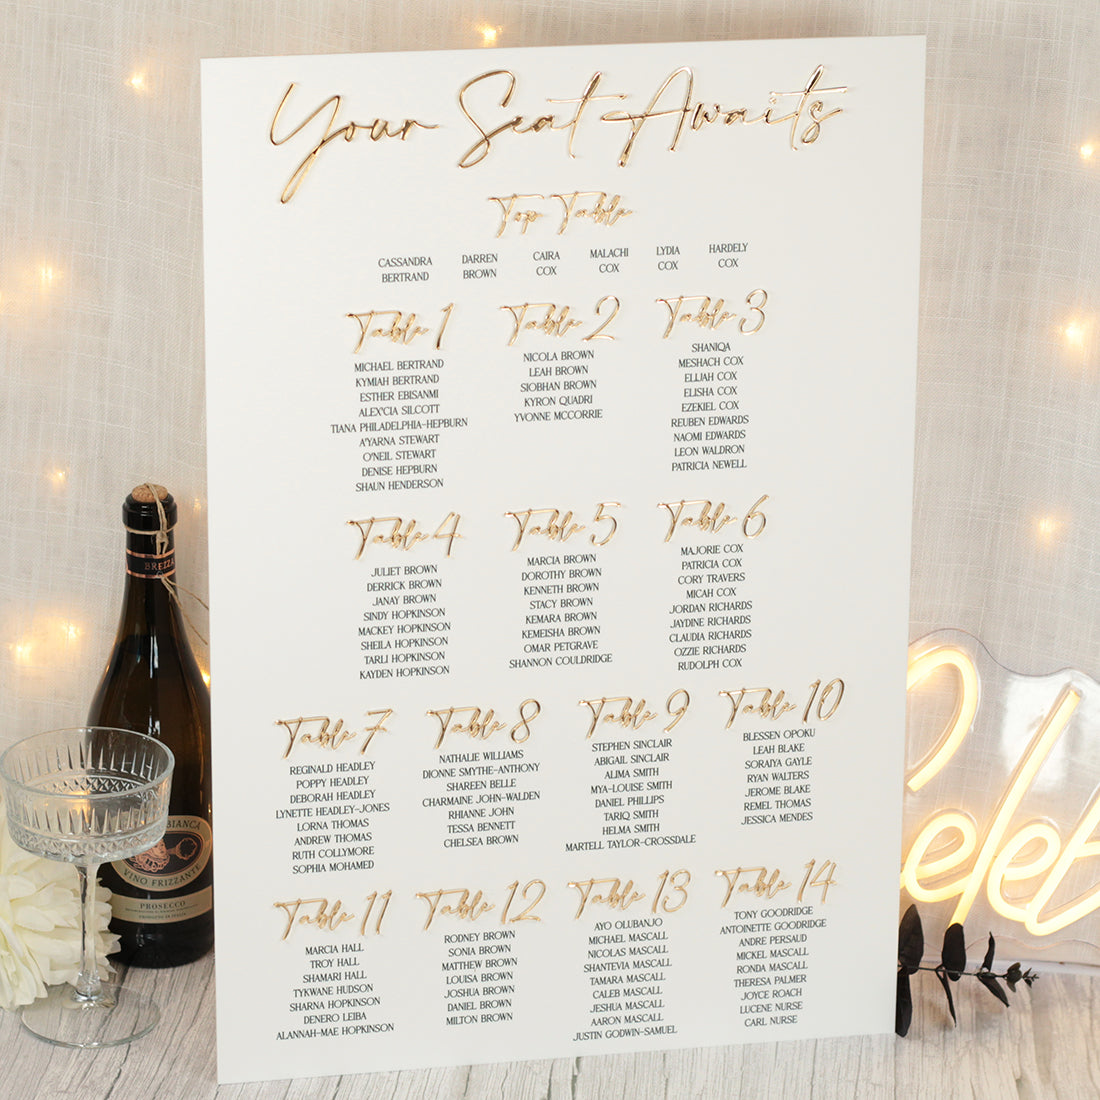 Your Seat Awaits
Top Table
CASSANDRA BERTRAND
DARREN BROWN
CAIRA COX
MALACHI COX
LYDIA COX
HARDELY COX
Table 1
MICHAEL BERTRAND
KYMIAH BERTRAND
ESTHER EBISANMI
ALEX'CIA SILCOTT
TIANA PHILADELPHIA-HEPBURN
A'YARNA STEWART
O'NEIL STEWART
DENISE HEPBURN
SHAUN HENDERSON
Table 2
NICOLA BROWN
LEAH BROWN
SIOBHAN BROWN
KYRON QUADRI
YVONNE MCCORRIE
Table 3
SHANIQA
MESHACH COX
ELIJAH COX
ELISHA COX
EZEKIEL COX
REUBEN EDWARDS
NAOMI EDWARDS
LEON WALDRON
PATRICIA NEWELL
Table 4
JULIET BROWN
DERRICK BROWN
JANAY BROWN
SINDY HOPKINSON
MACKEY HOPKINSON
SHEILA HOPKINSON
TARLI HOPKINSON
KAYDEN HOPKINSON
Table 5
MARCIA BROWN
DOROTHY BROWN
KENNETH BROWN
STACY BROWN
KEMARA BROWN
KEMEISHA BROWN
OMAR PETGRAVE
SHANNON COULDRIDGE
Table 6
MAJORIE COX
PATRICIA COX
CORY TRAVERS
MICAH COX
JORDAN RICHARDS
JAYDINE RICHARDS
CLAUDIA RICHARDS
OZZIE RICHARDS
RUDOLPH COX
Table 7
REGINALD HEADLEY
POPPY HEADLEY
DEBORAH HEADLEY
LYNETTE HEADLEY-JONES
LORNA THOMAS
ANDREW THOMAS
RUTH COLLYMORE
SOPHIA MOHAMED
Table 8
NATHALIE WILLIAMS
DIONNE SMYTHE-ANTHONY
SHAREEN BELLE
CHARMAINE JOHN-WALDEN
RHIANNE JOHN
TESSA BENNETT
CHELSEA BROWN
Table 9
STEPHEN SINCLAIR
ABIGAIL SINCLAIR
ALIMA SMITH
MYA-LOUISE SMITH
DANIEL PHILLIPS
TARIQ SMITH
HELMA SMITH
MARTELL TAYLOR-CROSSDALE
Table 10
BLESSEN OPOKU
LEAH BLAKE
SORAIYA GAYLE
RYAN WALTERS
JEROME BLAKE
REMEL THOMAS
JESSICA MENDES
Table 11
MARCIA HALL
TROY HALL
SHAMARI HALL
TYKWANE HUDSON
SHARNA HOPKINSON
DENERO LEIBA
ALANNAH-MAE HOPKINSON
Table 12
RODNEY BROWN
SONIA BROWN
MATTHEW BROWN
LOUISA BROWN
JOSHUA BROWN
DANIEL BROWN
MILTON BROWN
Table 13
AYO OLUBANJO
MICHAEL MASCALL
NICOLAS MASCALL
SHANTEVIA MASCALL
TAMARA MASCALL
CALEB MASCALL
JESHUA MASCALL
AARON MASCALL
JUSTIN GODWIN-SAMUEL
Table 14
TONY GOODRIDGE
ANTOINETTE GOODRIDGE
ANDRE PERSAUD
MICKEL MASCALL
RONDA MASCALL
THERESA PALMER
JOYCE ROACH
LUCENE NURSE
CARL NURSE
BREZZA
BIANCA
VINO FRIZZANTE
PROSECCO
Celeb